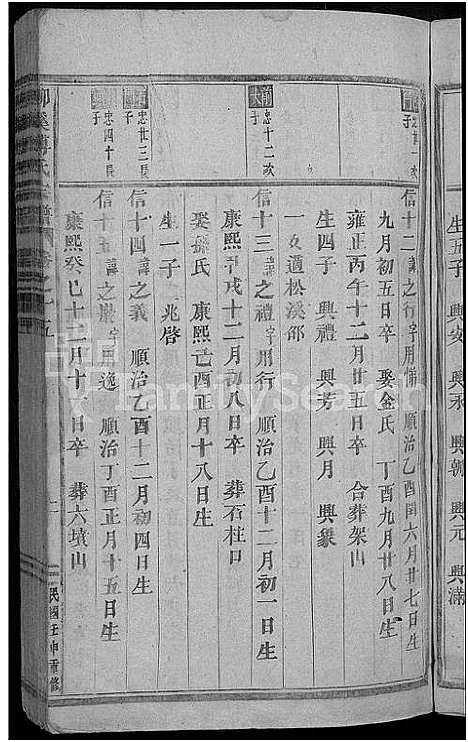 生五子 興安 興禾 興朝 興元 興滿
忠廿一次子
信十二 諱之行 字用備 順治乙酉閏六月廿七日生
九月初五日卒 娶金氏 順治丁酉九月廿八日生
雍正丙午十二月廿五日卒 合葬架山
生四子 興禮 興芳 興月 興象
一女適松溪邵
忠十二次子
信十三 諱之禮 字用行 順治乙酉十二月初一日生
康熙丙戌十二月初八日卒 葬石柱口
娶孫氏 康熙己酉正月十八日生
生一子 兆啓
忠廿三長子
信十四 諱之義 順治乙酉十二月初四日生
忠四十長子
信十五 諱之嚴 字用逸 順治丁酉正月十五日生
康熙癸巳十二月十一日卒 葬六墳山
柳溪傅氏宗譜 卷之十五
民國壬申重修
FamilySearch